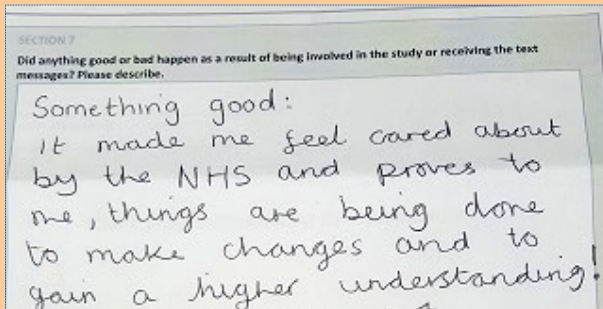 SECTION 7
Did anything good or bad happen as a result of being involved in the study or receiving the text
messages? Please describe.
Something good:
it made me feel cared about
by the NHS and proves to
me, things are being done
to make changes and to
gain a higher understanding!